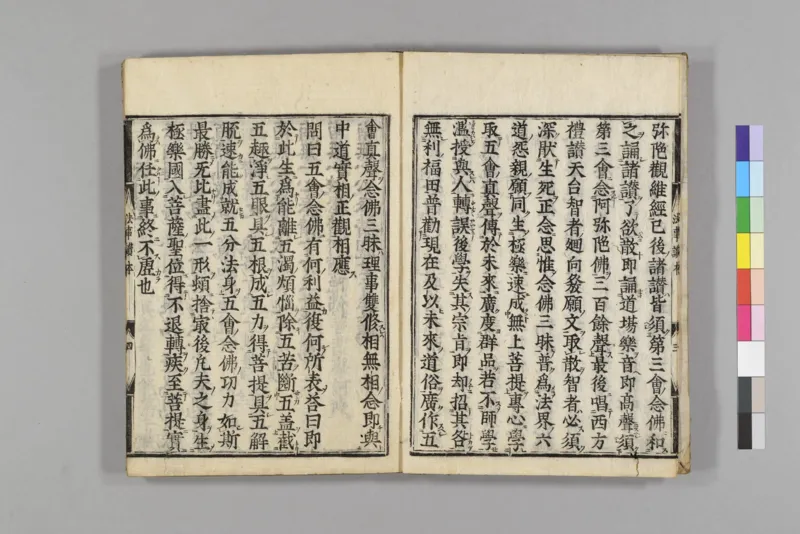 弥陁觀維經已後諸讃皆須第三會念佛和
之誦諸讃了欲散即誦道場樂音即髙聲須
第三會念阿弥陁佛三百餘聲最後唱西方
禮讃天台智者廻向發願文取散智者必須
深猒生死正念思惟念佛三昧普爲法界六
道怨親願同生極樂速成無上菩提專心學
取五會真聲傳於未來廣度群品若不師學
濫授與人轉誤後學失其宗旨即却招其咎
無利福田普勸現在及以未來道俗廣作五
會真聲念佛三昧理事雙修相無相念即與
中道實相正觀相應
問曰五會念佛有何利益復何所表荅曰即
於此生爲能離五濁煩惱除五苦斷五盖截
五趣淨五眼具五根成五力得菩提具五解
脫速能成就五分法身五會念佛功力如斯
最勝无比盡此一形頓捨最後凡夫之身生
極樂國入菩薩聖位得不退轉疾至菩提實
爲佛任此事終不虚也
三
四